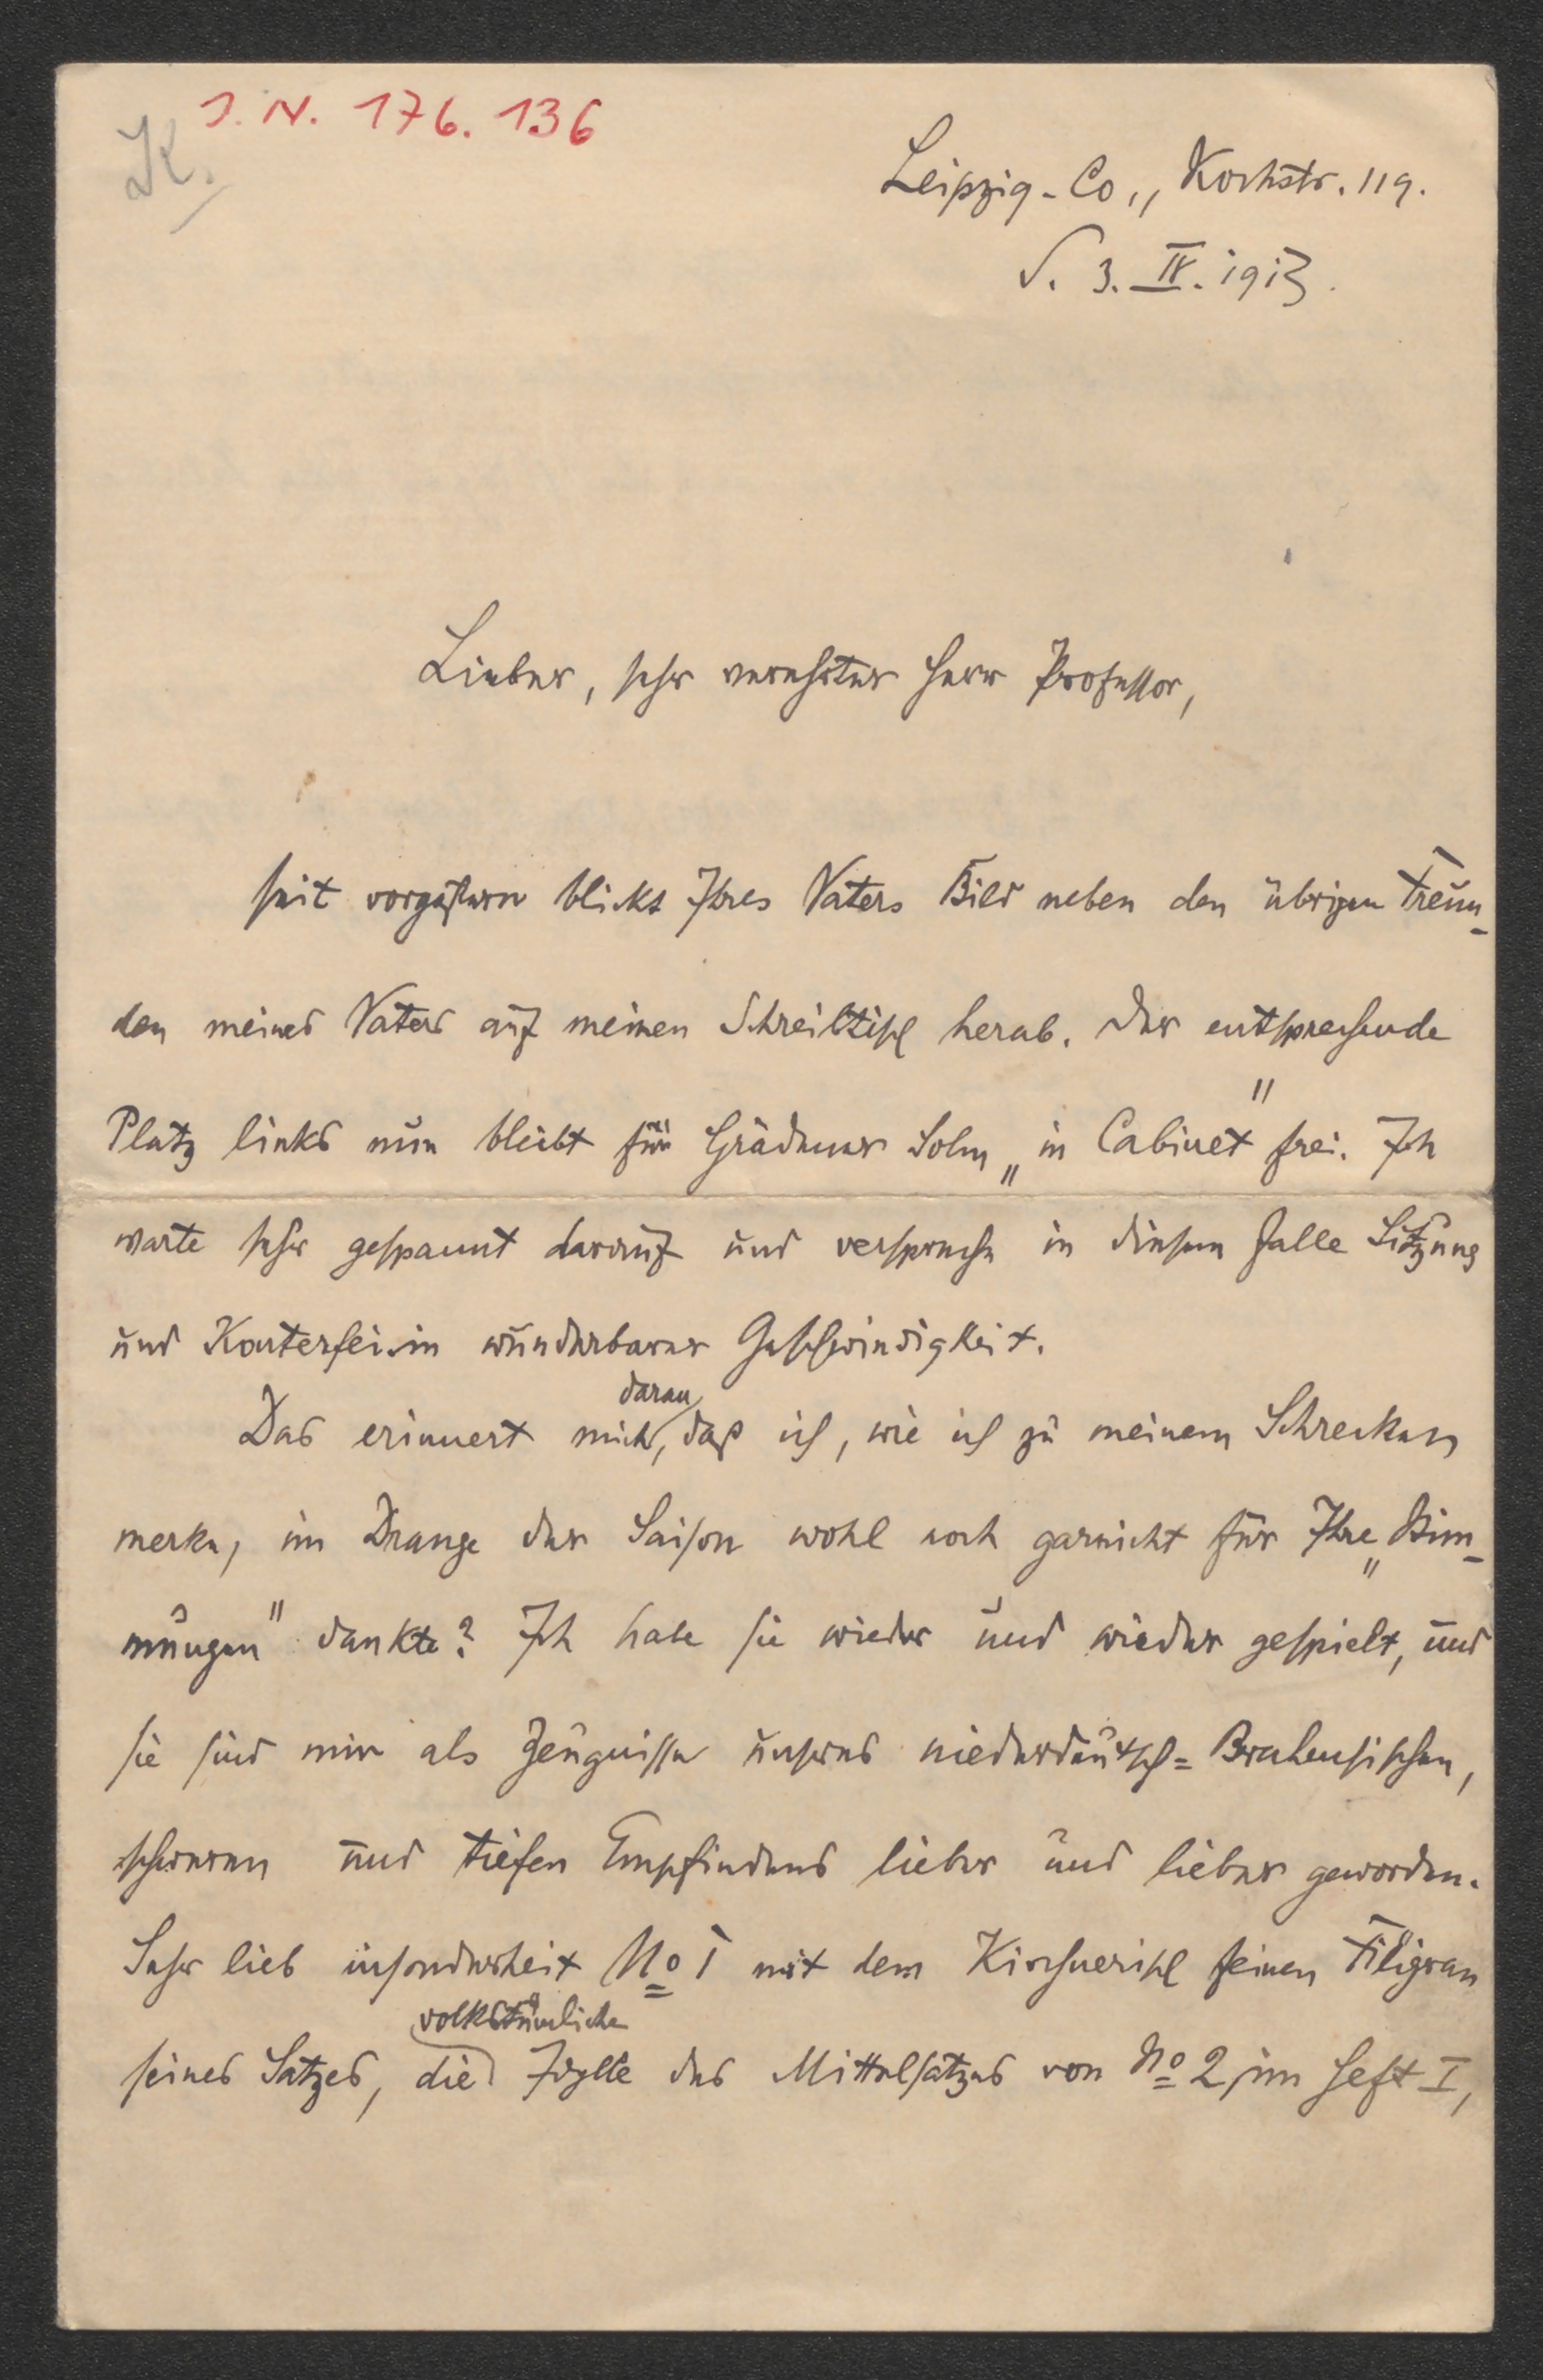 J. N. 176.136
K.
Leipzig-Co., Kochstr. 119.
d. 3. IV. 1913.
Lieber, sehr verehrter Herr Professor,
seit vorgestern blickt Ihres Vaters Bild neben den übrigen Freun-
den meines Vaters auf meinen Schreibtisch herab. Der entsprechende
Platz links nun bleibt für Grädener Sohn „in Cabinet" frei. Ich
warte sehr gespannt darauf und verspreche in diesem Falle Sitzung
und Konterfei in wunderbarer Geschwindigkeit.
Das erinnert mich daran, daß ich, wie ich zu meinem Schrecken
merke, im Drange der Saison wohl noch garnicht für Ihre „Stim-
mungen" dankte? Ich habe sie wieder und wieder gespielt, und
sie sind mir als Zeugnisse unseres niederdeutsch-Brahmsischen,
schweren und tiefen Empfindens lieber und lieber geworden.
Sehr lieb insonderheit No 1 mit dem Kirchnerisch feinen Filigran
seines Satzes, die volkstümliche Idylle des Mittelsatzes von No 2 im Heft I,